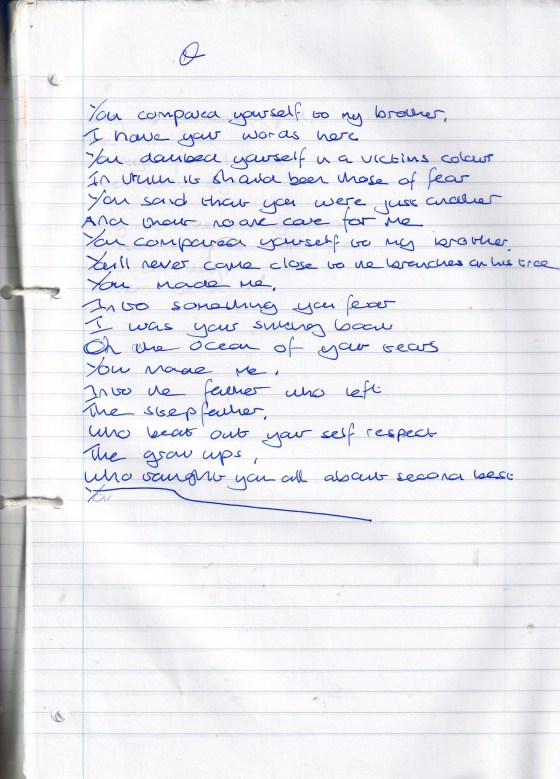 You compared yourself to my brother.
I have your words here
You daubed yourself in a victims colour
In truth it should been those of fear
You said that you were just another
And that no one care for me
You compared yourself to my brother.
You'll never come close to the branches on his tree
You made me.
Into something you fear
I was your sinking boat
On the ocean of your tears
You made me.
Into the father who left
The stepfather.
who beat out your self respect
The grow ups.
who taught you all about second best
You